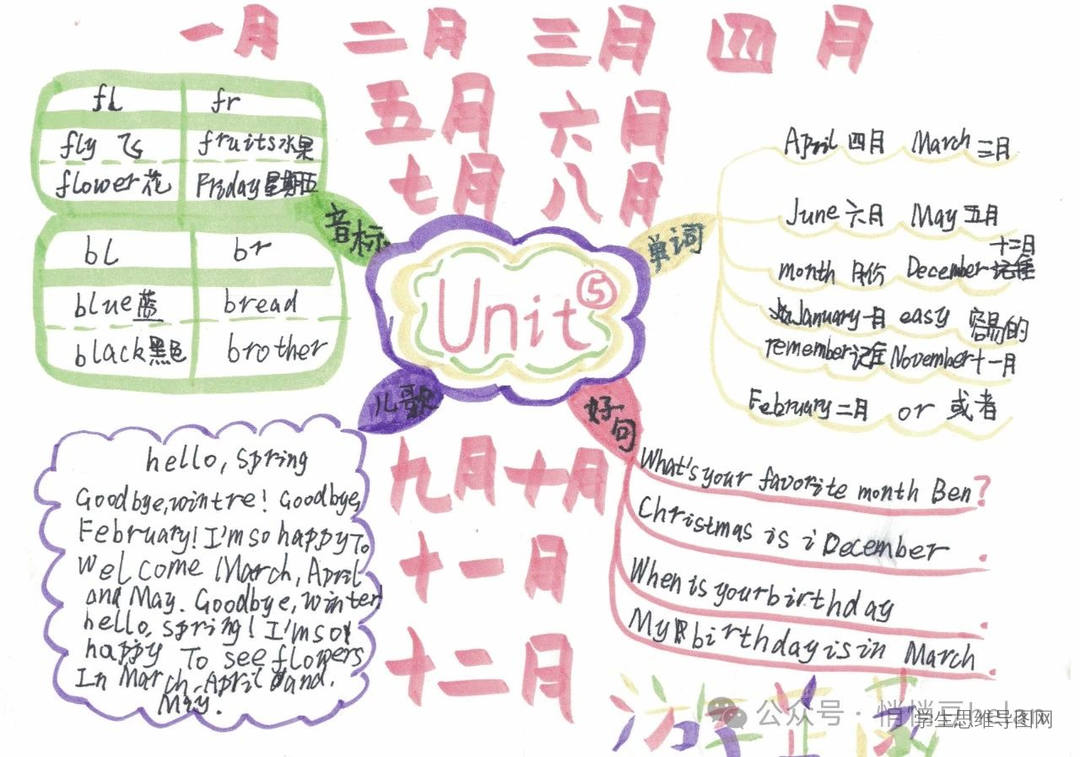 一月 二月 三月 四月
五月 六月
七月 八月
fl fr
fly 飞 fruits水果
flower花 Friday星期五
bl br
blue蓝 bread
black黑色 brother
音标
Unit ⑤
单词
April 四月 March 三月
June 六月 May 五月
十二月
month 月份 December
January一月 easy 容易的
remember记住 November十一月
February二月 or 或者
儿歌
hello, spring
Goodbye,wintre! Goodbye,
February! I'm so happy To
Welcome March, April
and May. Goodbye, winter
hello, spring! I'm so
happy To see flowers
In March, April and.
May.
好句
What's your favorite month Ben?
Christmas is i December.
When is your birthday.
My birthday is in March.
九月 十月
十一月
十二月
公众号·悄悄豆
学生思维导图网